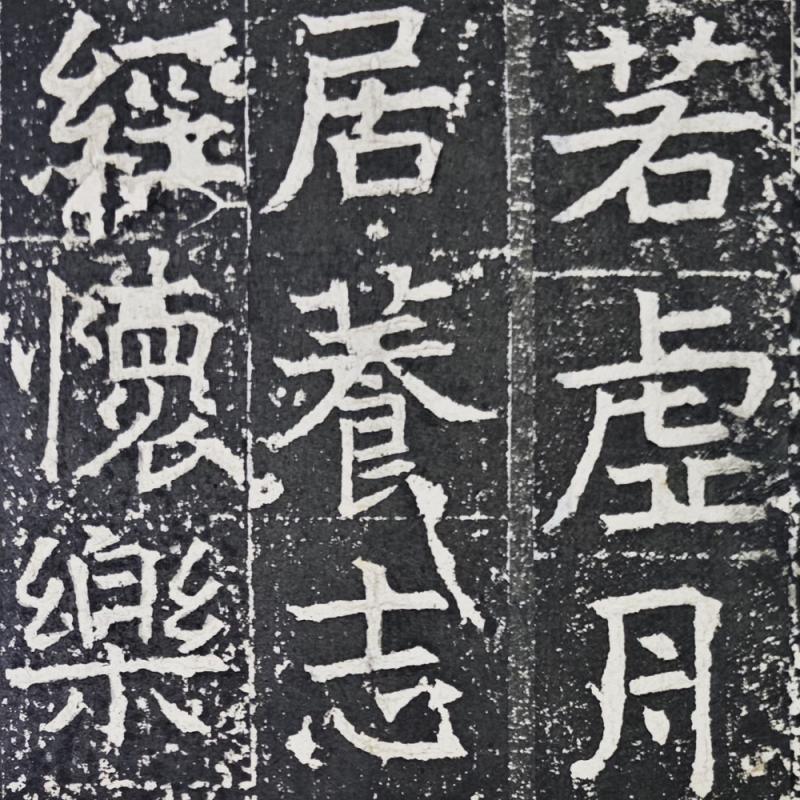 若虛月
居養志
緩懷樂